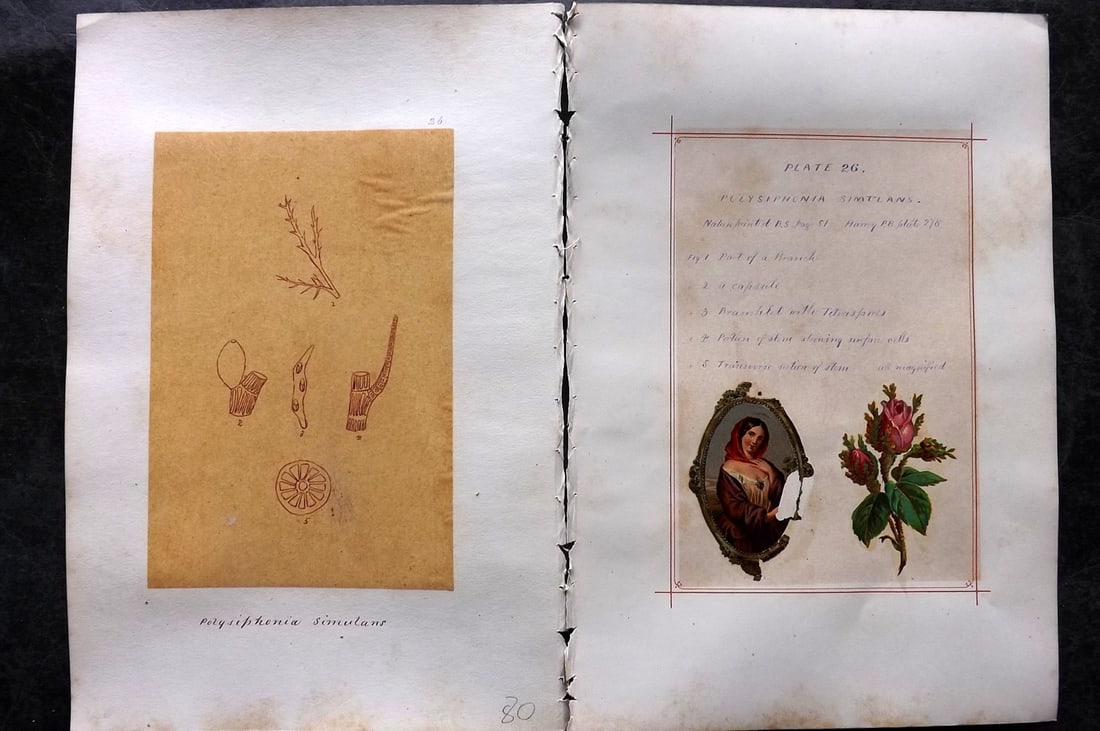 26
1
2
3
4
5
Polysiphonia Simulans
80
PLATE 26.
POLYSIPHONIA SIMULANS.
Nature printed B.S. Page 51 Harvey P.B. plate 278
Fig 1 Part of a Branch
" 2 a capsule
" 3 Branchlet with Tetraspores
" 4 Portion of stem showing surface cells
" 5 Transverse section of stem all magnified